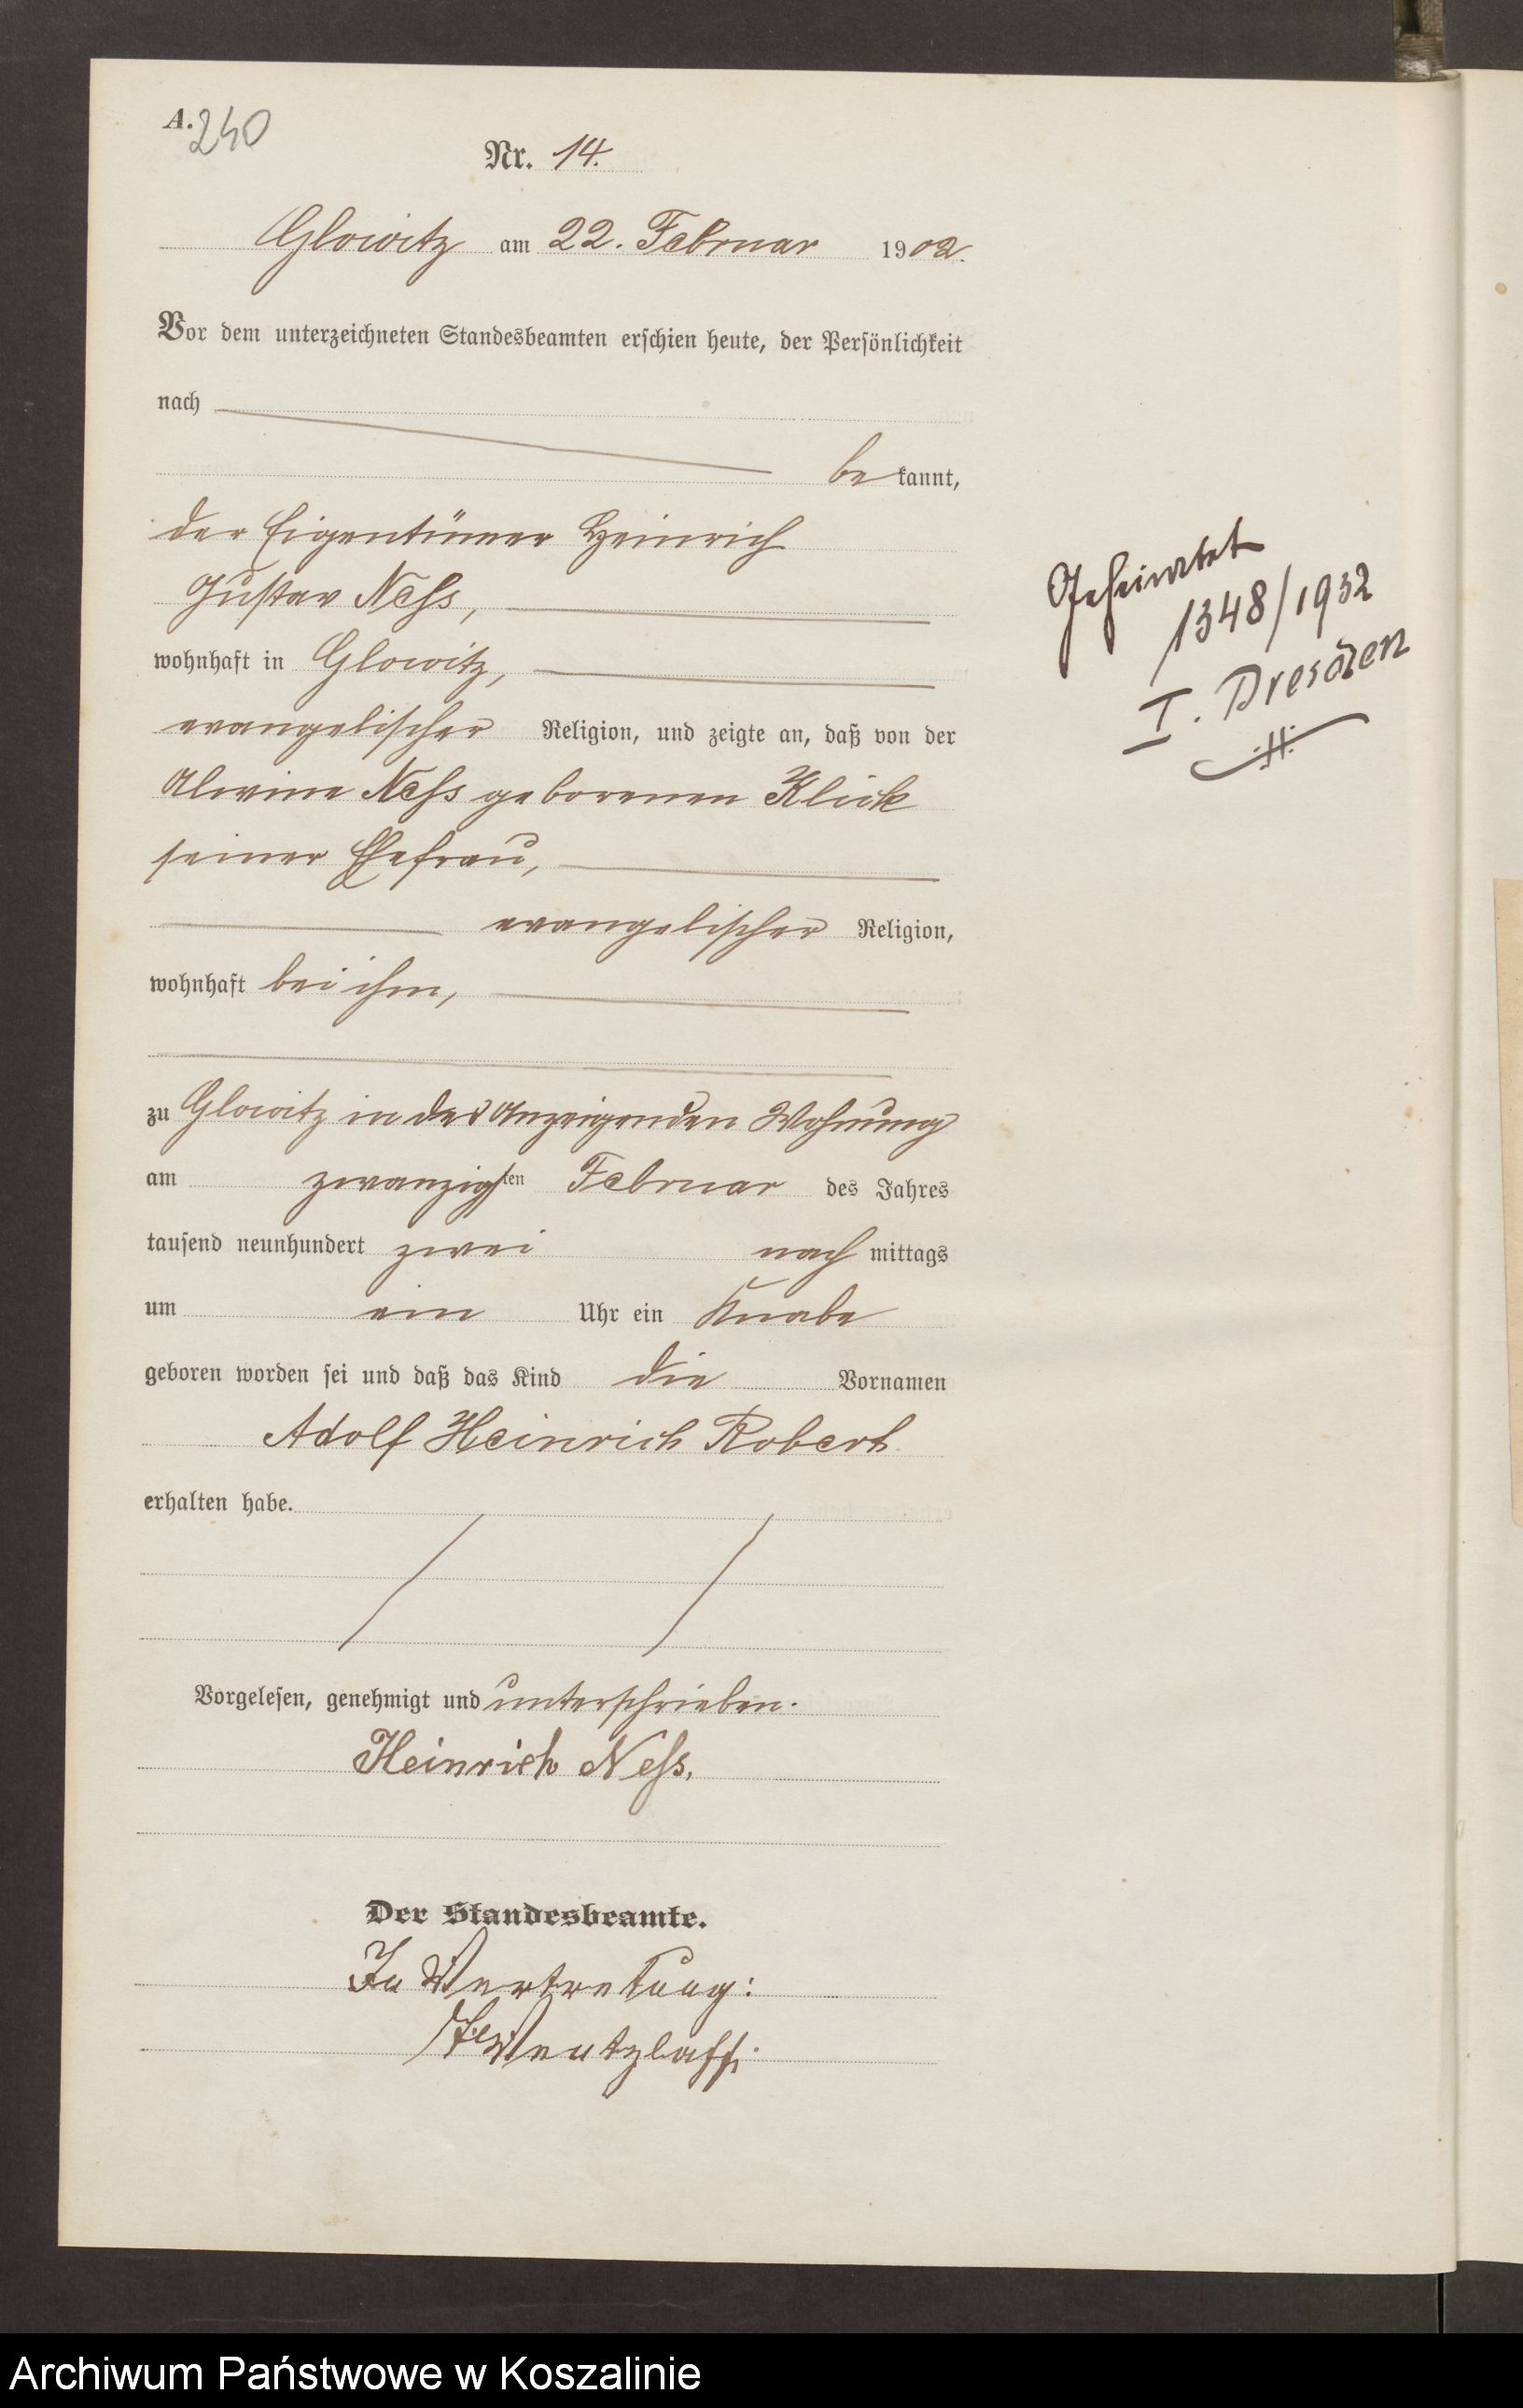 A. 240
Nr. 14.
Glowitz am 22. Februar 1902.
Vor dem unterzeichneten Standesbeamten erschien heute, der Persönlichkeit
nach
be kannt,
der Eigentümer Heinrich
Gustav Neſs,
wohnhaft in Glowitz,
evangelischer Religion, und zeigte an, daß von der
Alwine Neſs geborenen Klick
seiner Ehefrau,
evangelischer Religion,
wohnhaft bei ihm,
zu Glowitz in des Anzeigenden Wohnung
am zwanzigsten Februar des Jahres
tausend neunhundert zwei nach mittags
um ein Uhr ein Knabe
geboren worden sei und daß das Kind die Vornamen
Adolf Heinrich Robert
erhalten habe.
Vorgelesen, genehmigt und unterschrieben.
Heinrich Neſs.
Der Standesbeamte.
In Vertretung:
Wentzlaff.
Geheiratet
1348/1932
I. Dresden
Archiwum Państwowe w Koszalinie